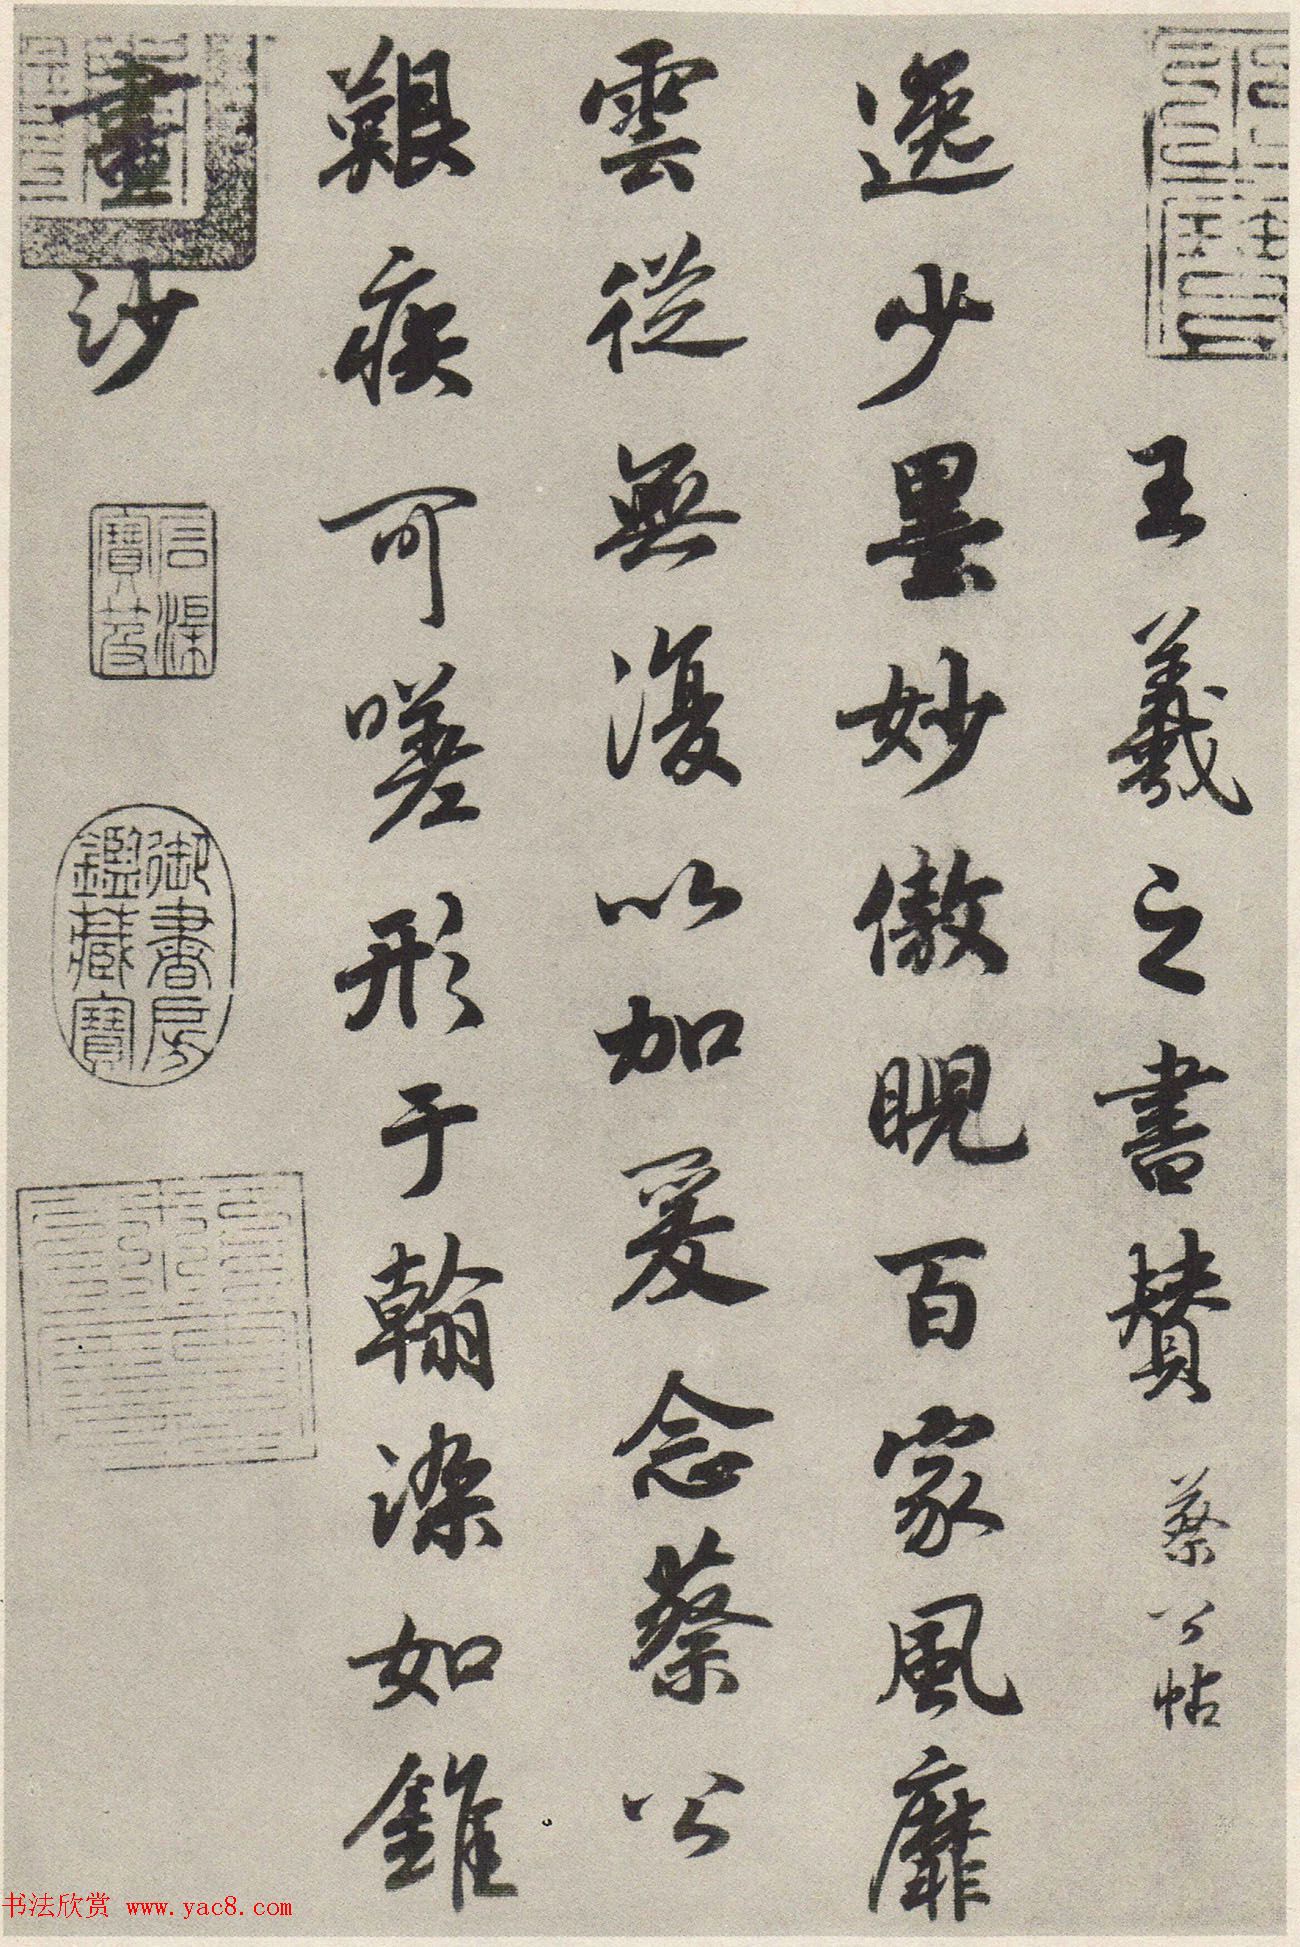 王羲之書贊 蔡公帖
逸少墨妙傲睨百家風靡
雲從無復以加爰念蔡公
艱疾可嗟形于翰染如錐
畫沙
御書房鑑藏寶
书法欣赏 www.yac8.com